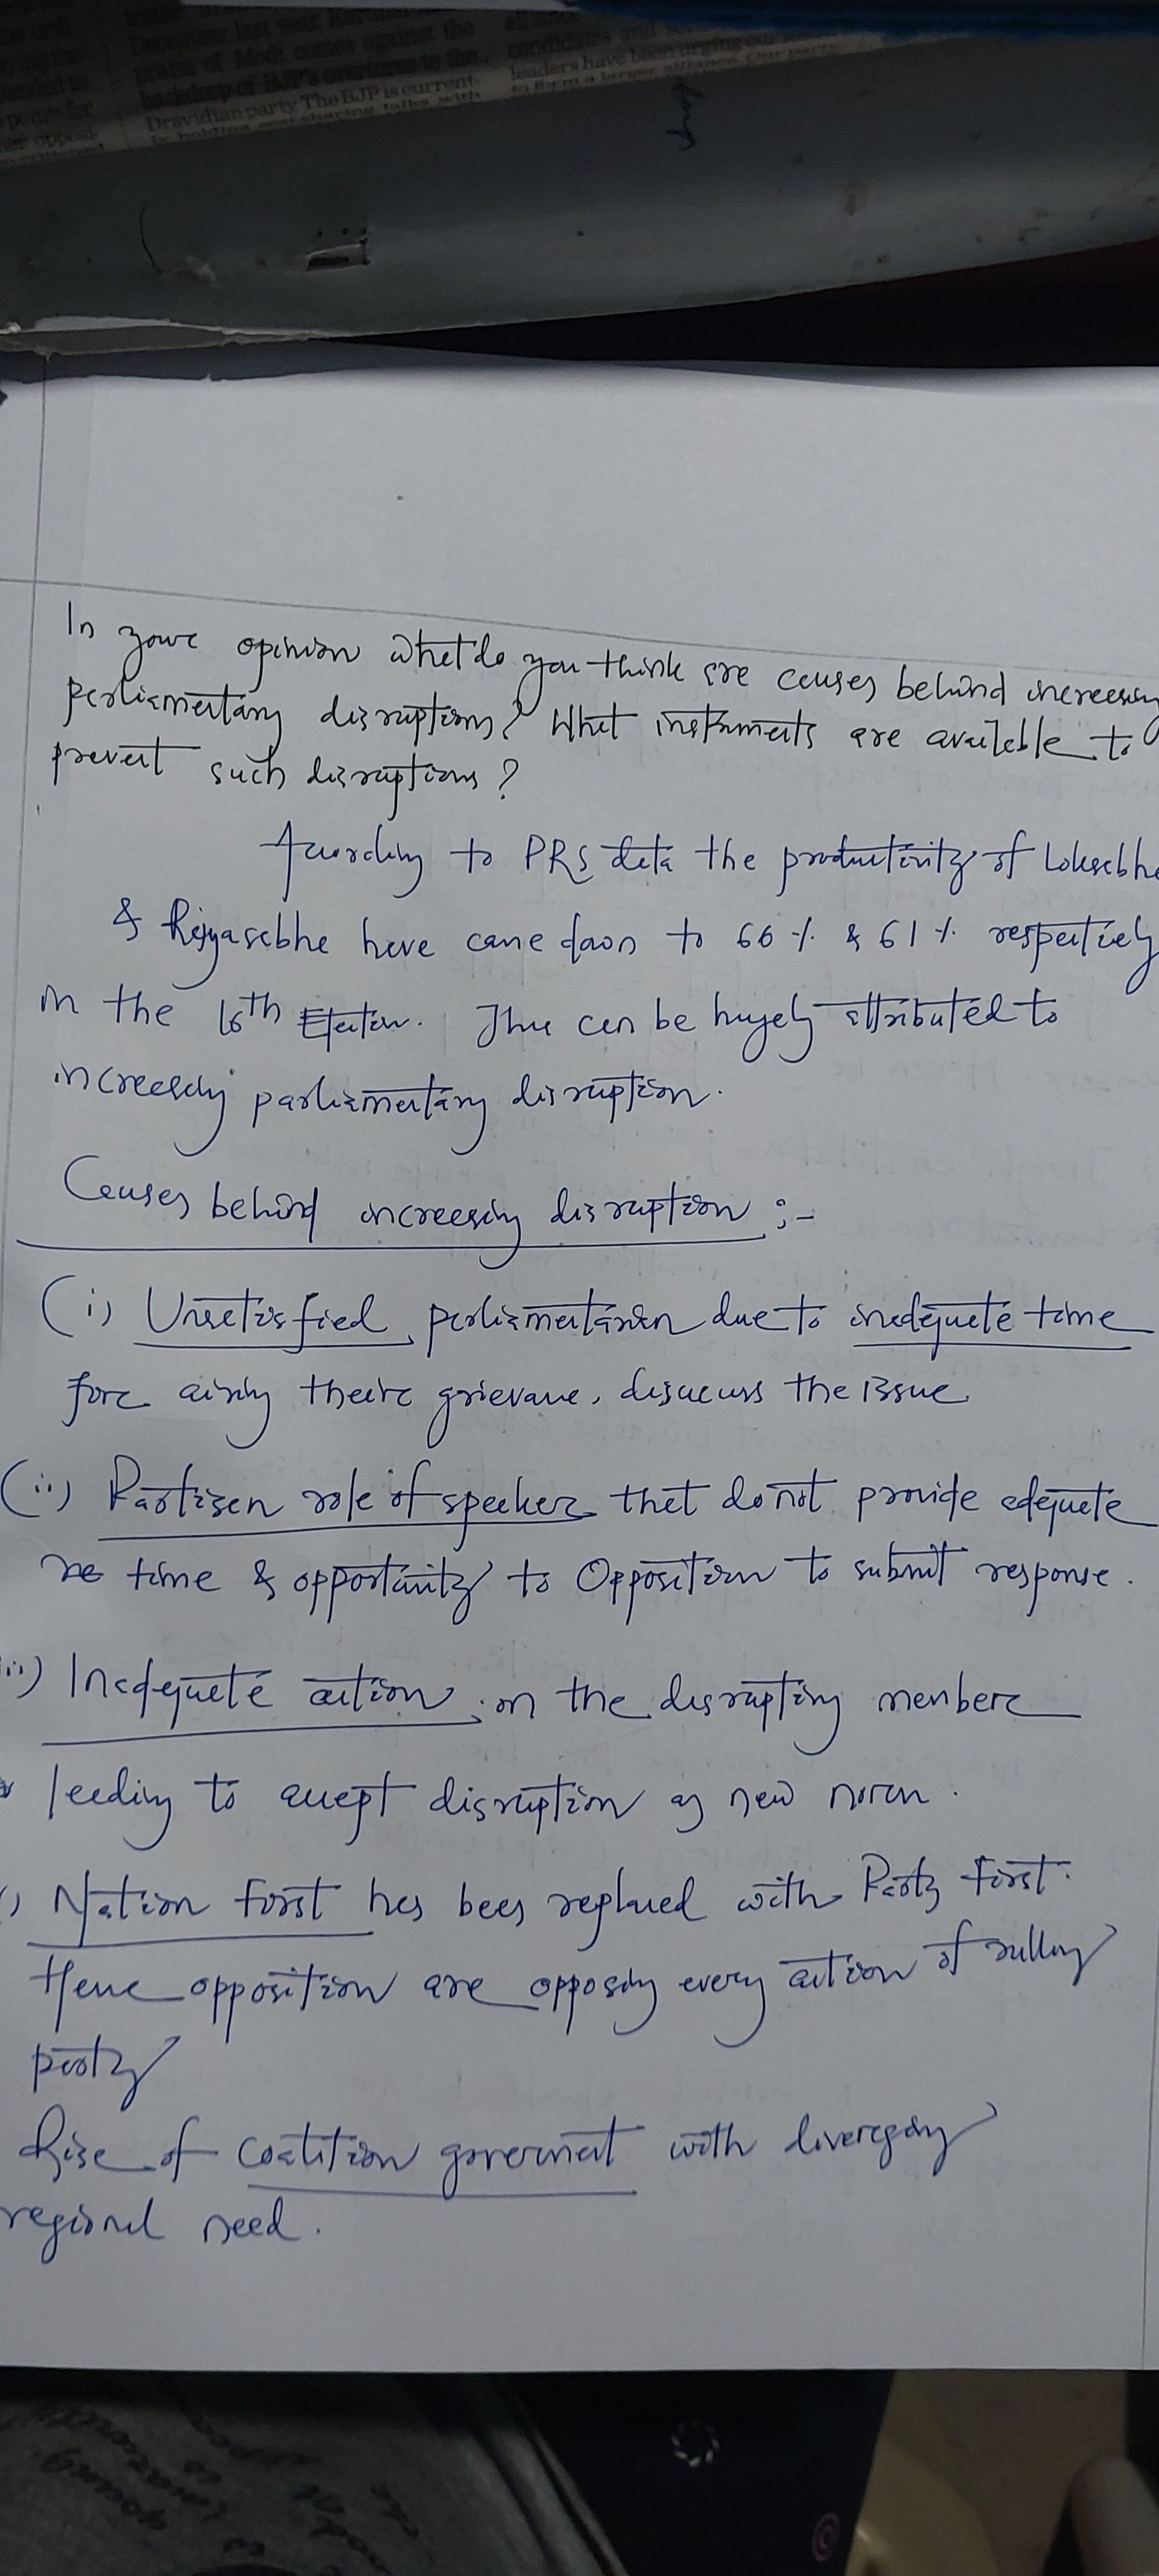 December last year
praise of Modi comes against the
backdrop of BJP's overtures to the
Dravidian party. The BJP is current-
ly holding seat sharing talks with
candidates and
leaders have been urging our
to form a larger alliance. Our party
In youre opinion what do you think are causes behind increasing
parliamentary disruptions? What instruments are available to
prevent such disruptions?
According to PRS data the productivity of Loksabha
& Rajyasabha have came down to 66 % & 61 % respectively
in the 16th Election. This can be hugely attributed to
increasing parliamentary disruption.
Causes behind increasing disruption :-
(i) Unsatisfied parliamentarian due to inadequate time
fore airing theire grievance, disucuss the issue
(ii) Partisan role of speaker that do not provide adequate
re time & opportunity to Opposition to submit response.
iii) Inadequate action on the disrupting member
leading to accept disruption as new norm.
) Nation first has been replaced with Party first.
Hence opposition are opposing every action of rulling
party
Rise of coalition goverment with diverging
regional need.